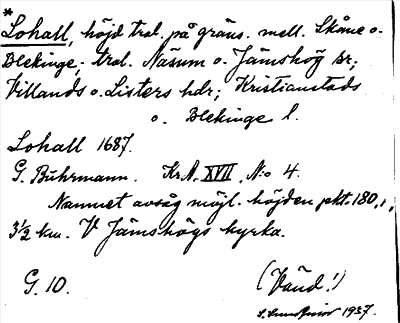 *
Lohall, höjd tral. på gräns. mell. Skåne o.
Blekinge; tral. Näsum o. Jämshög sr;
Villands o. Listers hdr; Kristianstads
o. Blekinge l.
Lohall 1687.
G. Buhrmann. Kr.A. XVII, N:o 4.
Namnet avsåg möjl. höjden pkt. 180,1,
3½ km. V Jämshögs kyrka.
G. 10. (Vänd!)
1937.